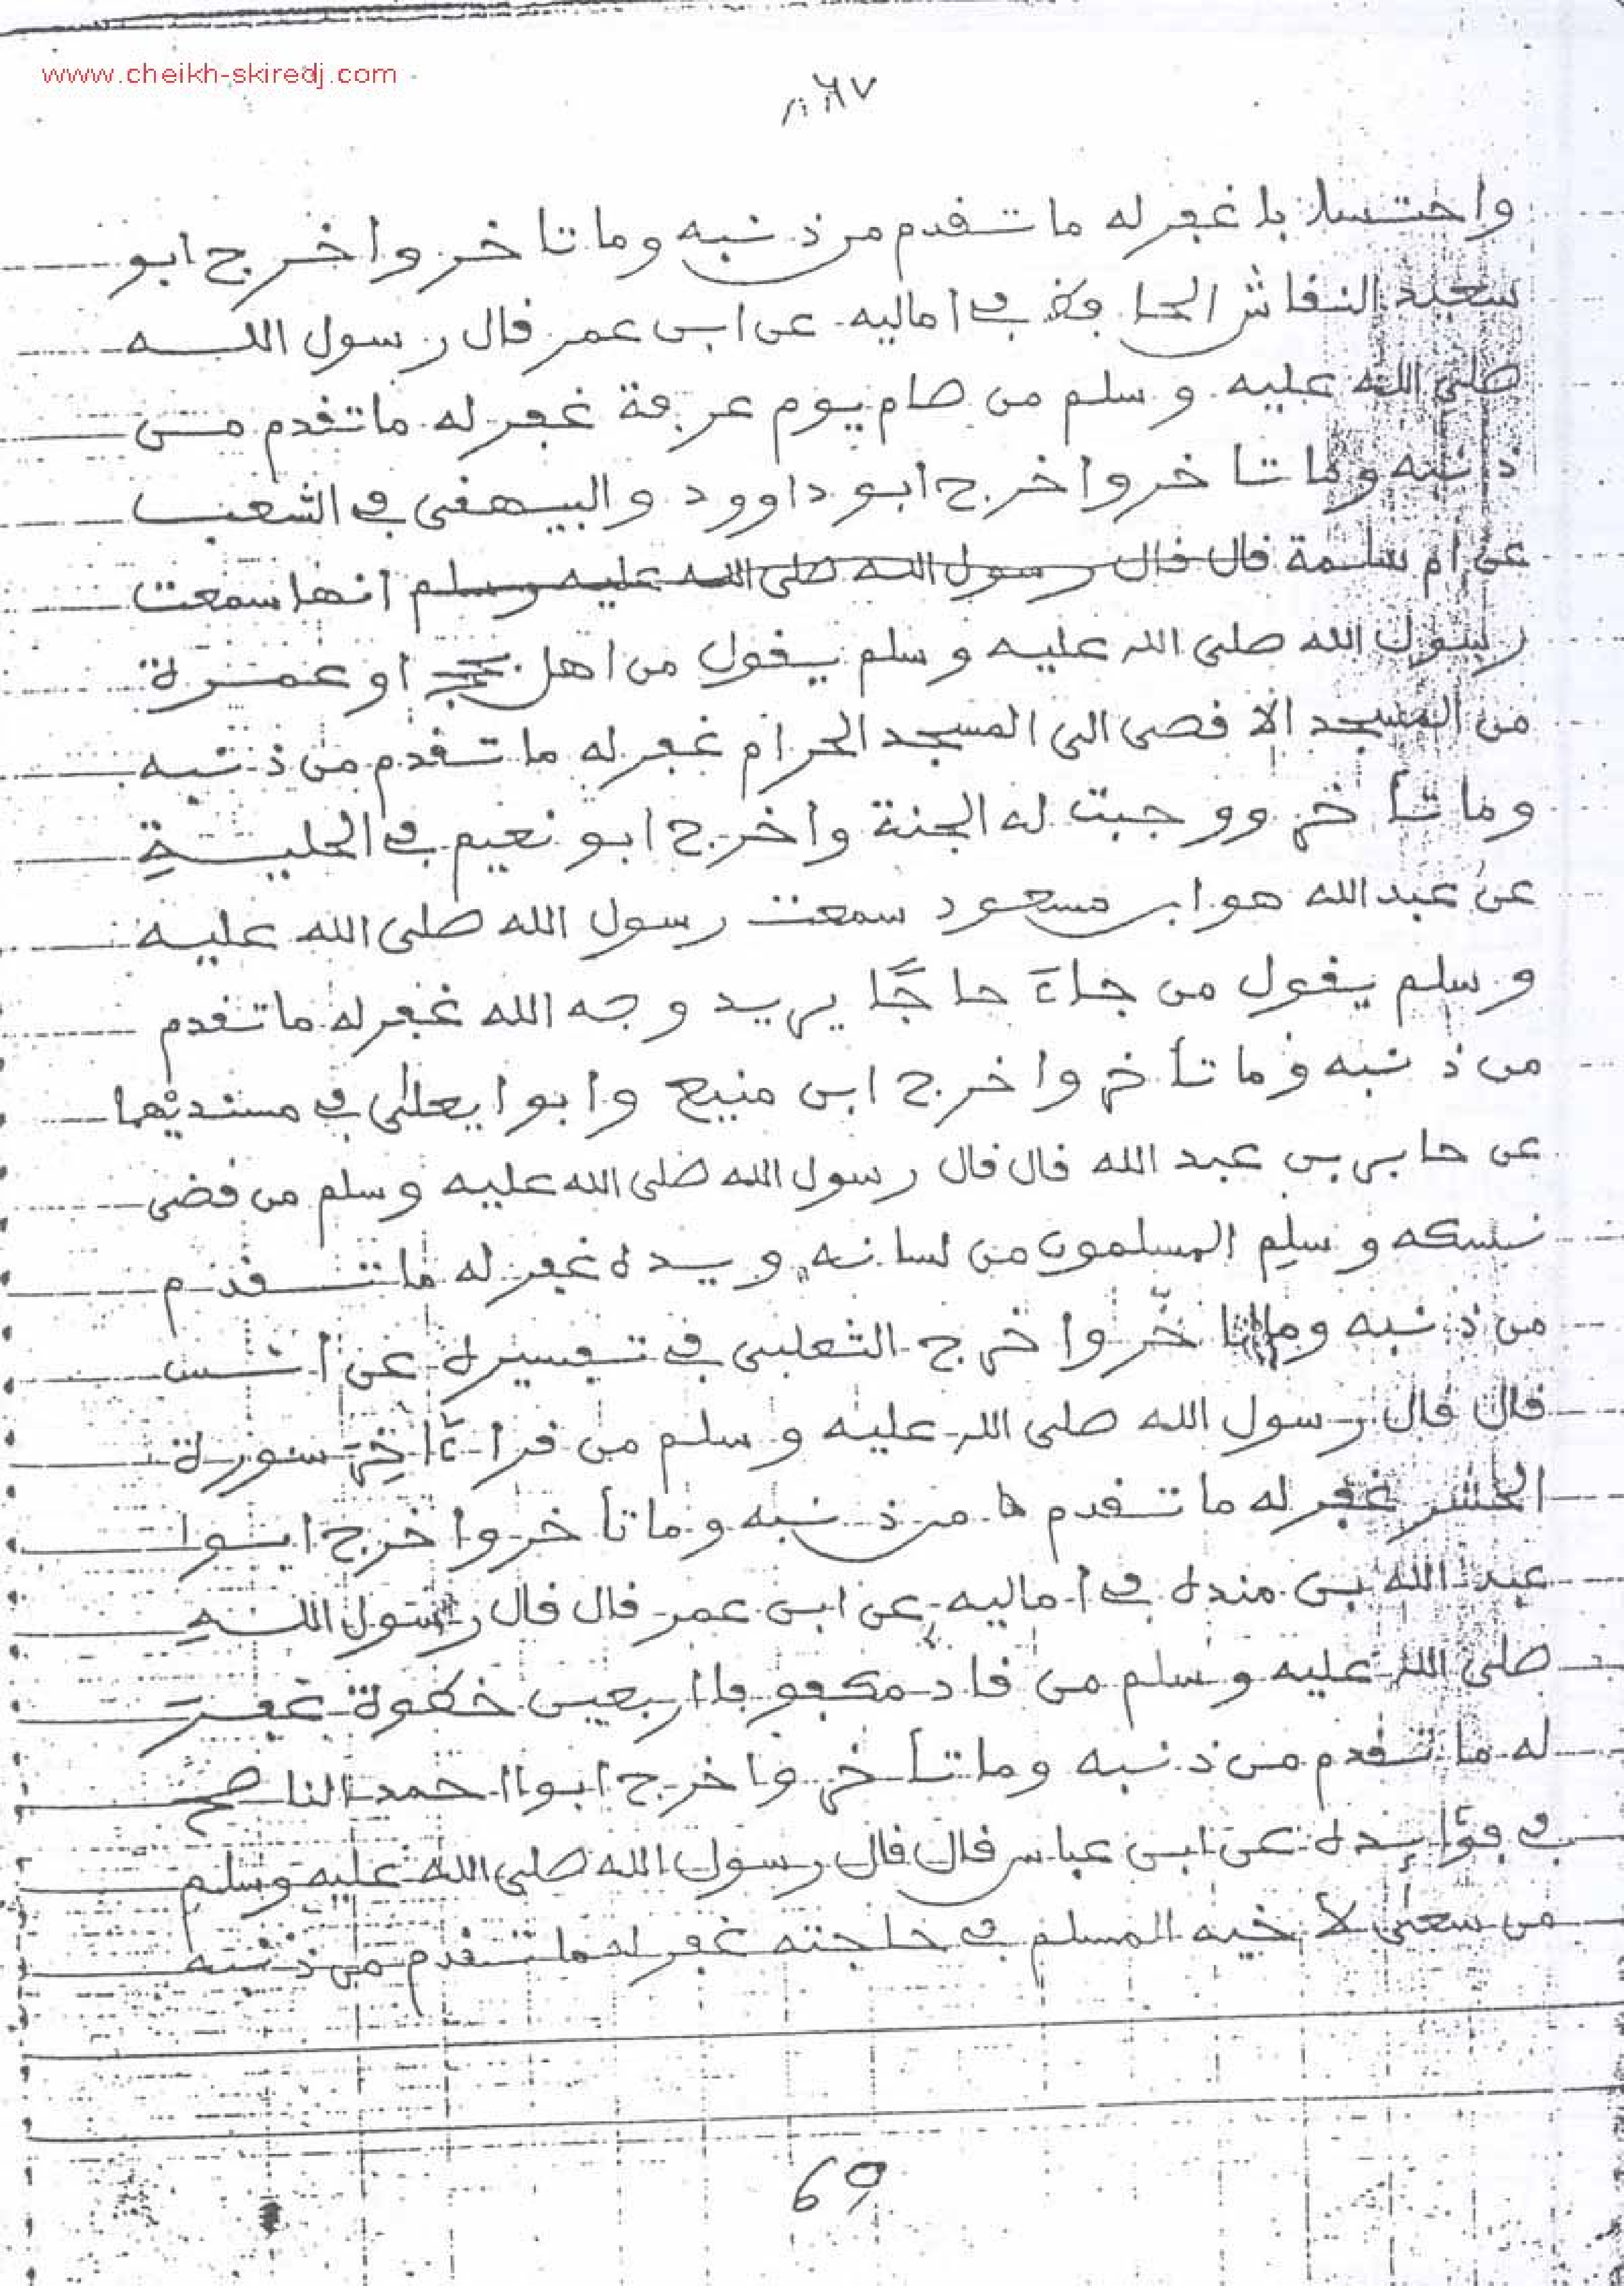 www.cheikh-skiredj.com
٦٧
واحتسابا غفر له ما تقدم من ذنبه وما تاخر واخرج ابو
سعيد النقاش الحافظ في اماليه عن ابن عمر قال رسول الله
صلى الله عليه وسلم من صام يوم عرفة غفر له ما تقدم من
ذنبه وما تاخر واخرج ابو داوود والبيهقي في الشعب
عن ام سلمة قال قال رسول الله صلى الله عليه وسلم انها سمعت
رسول الله صلى الله عليه وسلم يقول من اهل بحج او عمرة
من المسجد الاقصى الى المسجد الحرام غفر له ما تقدم من ذنبه
وما تأخر ووجبت له الجنة واخرج ابو نعيم في الحلية
عن عبد الله هو ابن مسعود سمعت رسول الله صلى الله عليه
وسلم يقول من جاء حاجًا يريد وجه الله غفر له ما تقدم
من ذنبه وما تأخر واخرج ابن منيع وابوا يعلى في مسنديهما
عن جابر بن عبد الله قال قال رسول الله صلى الله عليه وسلم من قضى
نسكه وسلم المسلمون من لسانه ويده غفر له ما تقدم
من ذنبه وما تاخر واخرج الثعلبي في تفسيره عن انس
قال قال رسول الله صلى الله عليه وسلم من قرا ءاخر سورة
الحشر غفر له ما تقدم من ذنبه وما تأخر واخرج ابوا
عبد الله بن منده في أماليه عن ابن عمر قال قال رسول الله
صلى الله عليه وسلم من قاد مكفوفا اربعين خطوة غفر
له ما تقدم من ذنبه وما تأخر واخرج ابوا احمد الناصح
في فوائده عن ابن عباس قال قال رسول الله صلى الله عليه وسلم
من سعى لأخيه المسلم في حاجته غفر له ما تقدم من ذنبه
69